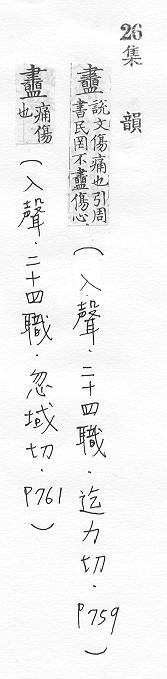 26
集韻
衋 說文傷痛也引周書民罔不衋傷心.(入聲.二十四職.迄力切.P759)
衋 痛傷也(入聲.二十四職.忽域切.P761)